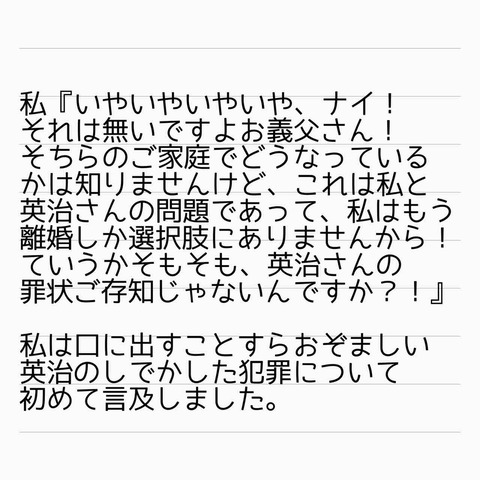 私『いやいやいやいや、ナイ！
それは無いですよお義父さん！
そちらのご家庭でどうなっている
かは知りませんけど、これは私と
英治さんの問題であって、私はもう
離婚しか選択肢にありませんから！
ていうかそもそも、英治さんの
罪状ご存知じゃないんですか？！』
私は口に出すことすらおぞましい
英治のしでかした犯罪について
初めて言及しました。